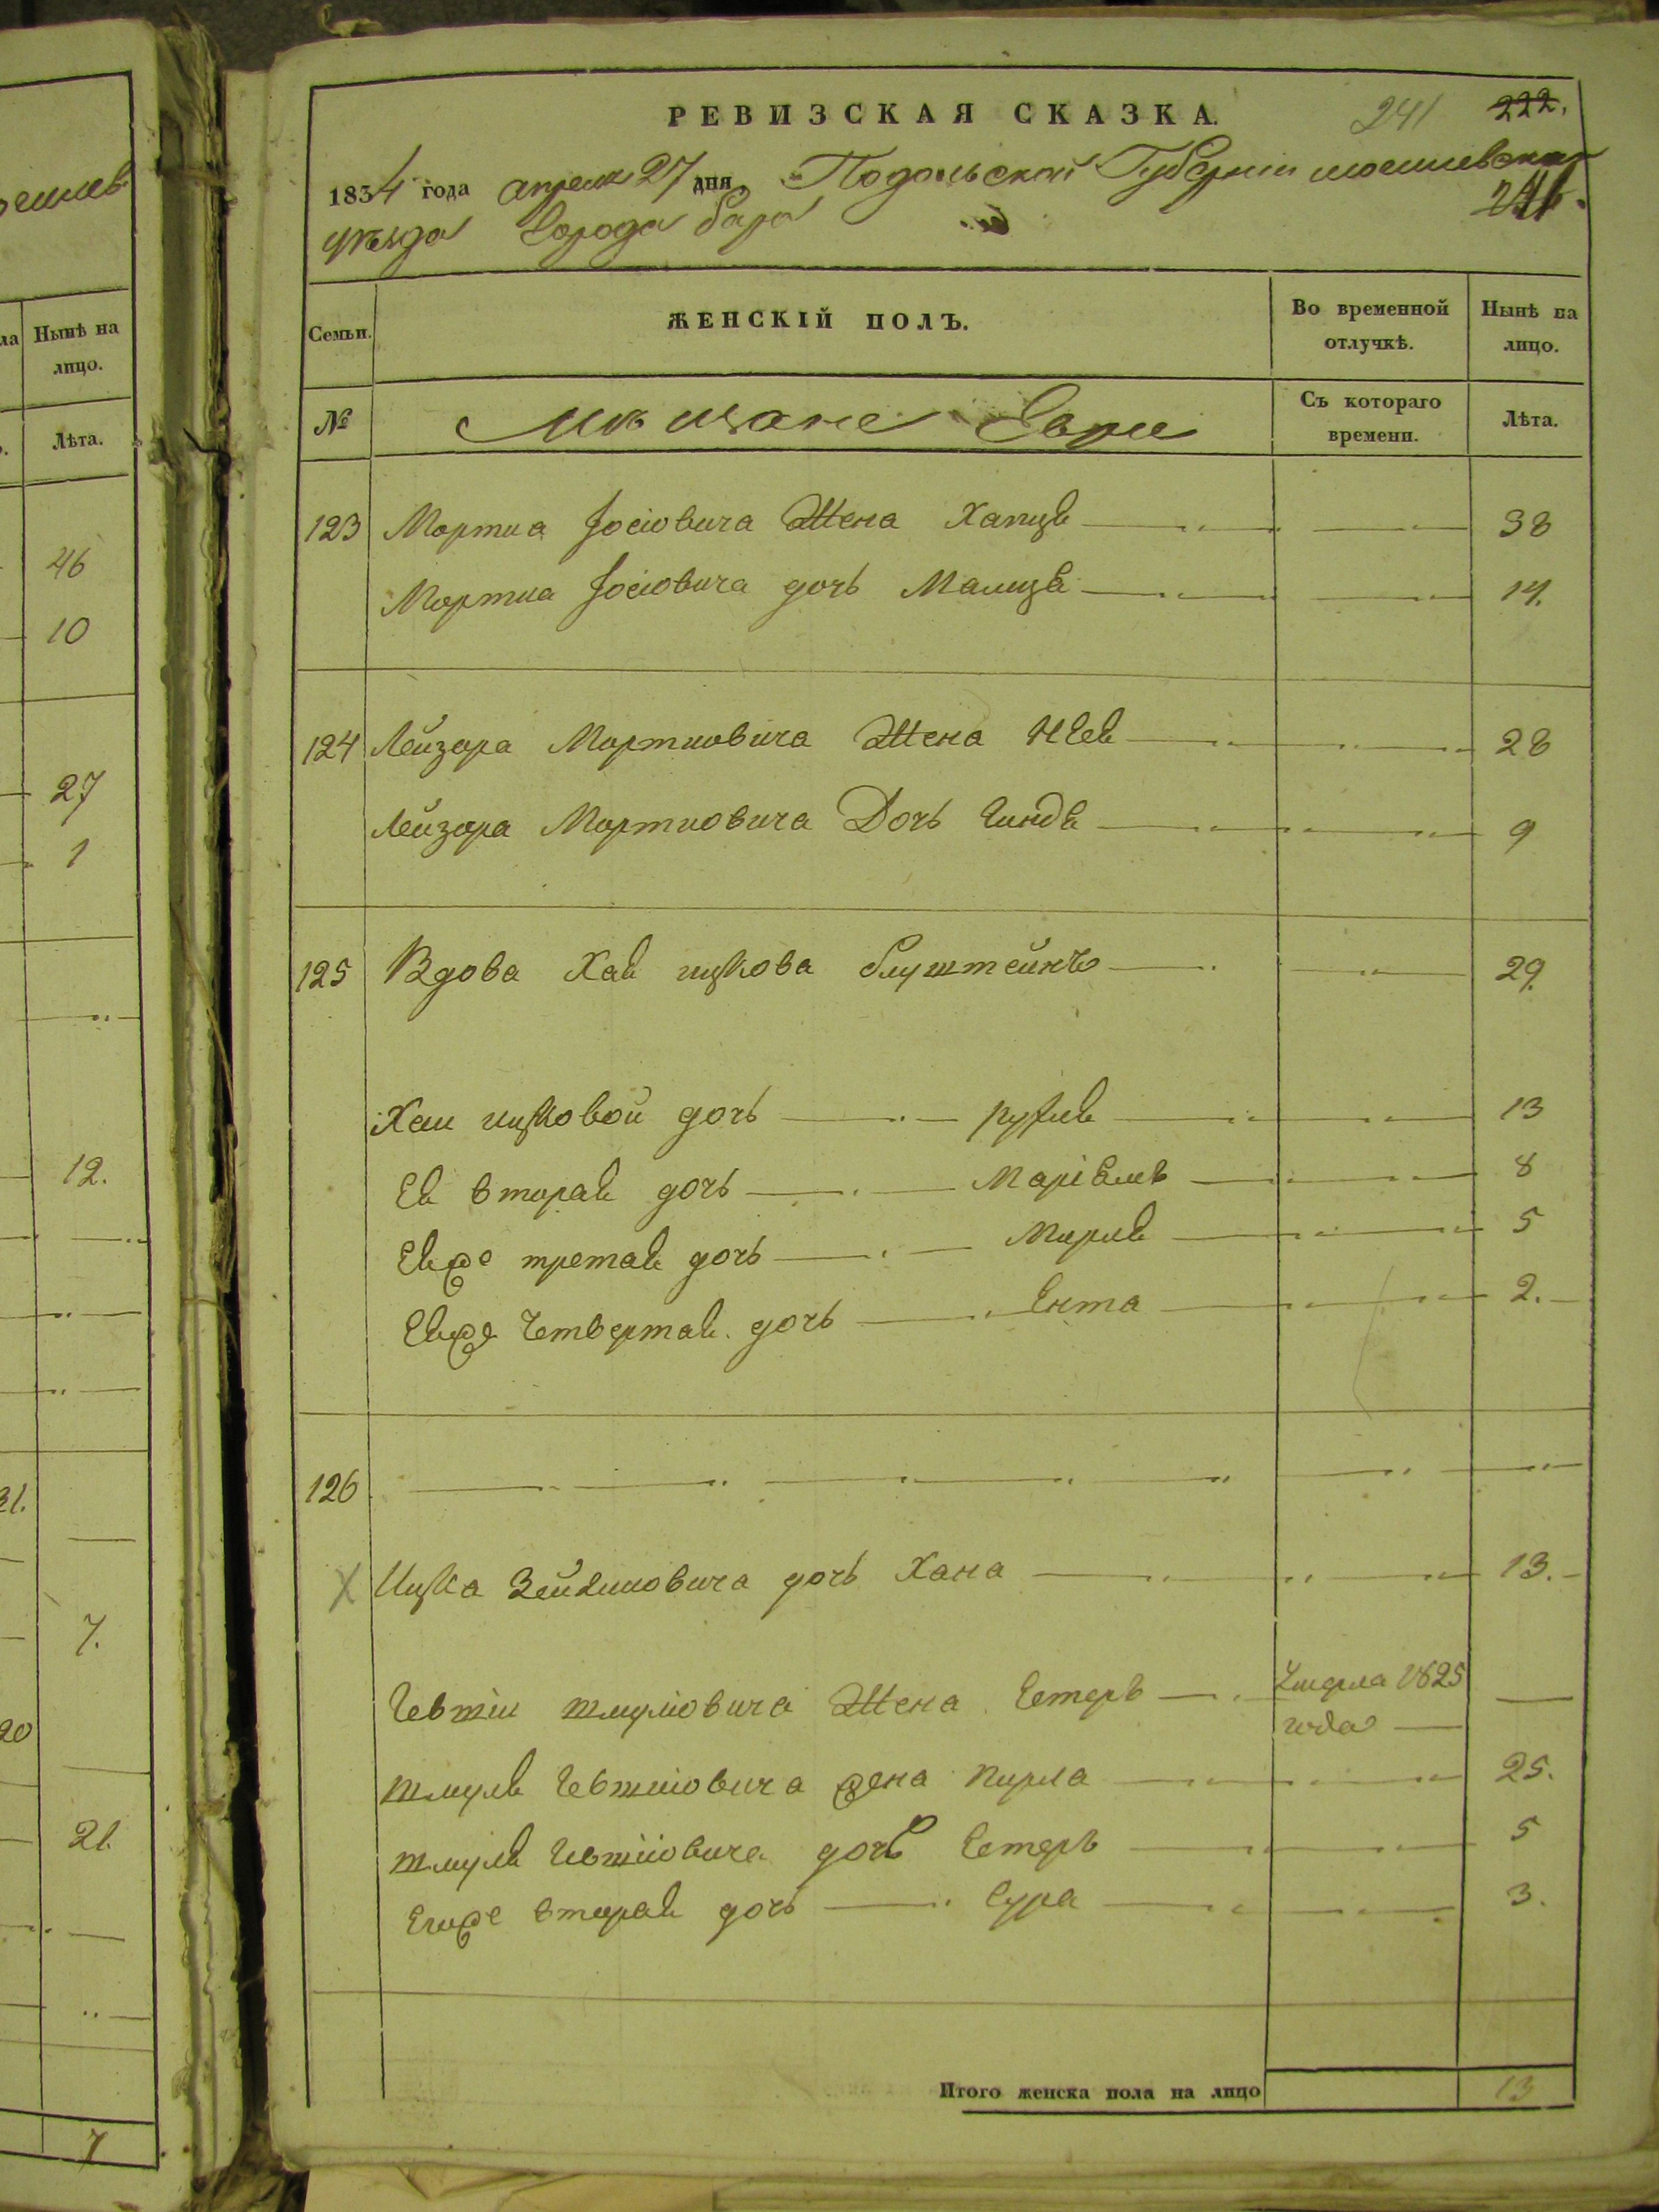 РЕВИЗСКАЯ СКАЗКА.
241 222.
1834 года апреля 27 дня Подольской Губернии
уезда Города бара
Семьи.
ЖЕНСКІЙ ПОЛЪ.
Во временной отлучкѣ.
Нынѣ на лицо.
№
Мѣщане Евреи
Съ котораго времени.
Лѣта.
123 Мортка Іосіовича Жена Хапця 38
Мортка Іосіовича дочь Малця 14.
124 Лейзора Мортковича Жена 28
Лейзора Мортковича Дочь Гиндя 9
125 Вдова Хая ицкова 29.
Хаи ицковой дочь 13
Ея вторая дочь Маріямъ 8
Еяже третая дочь Мирля 5
Еяже Четвертая дочь Ента 2.
126
Ицка Зейликовича дочь Хана 13.
Жена Естеръ Умерла 1825 года
Шмуля жена Пирла 25.
Шмуля дочь Естеръ 5
Егоже вторая дочь Сура 3.
Итого женска пола на лицо 13
Нынѣ на лицо.
Лѣта.
46
10
27
1
12.
7.
21.
7